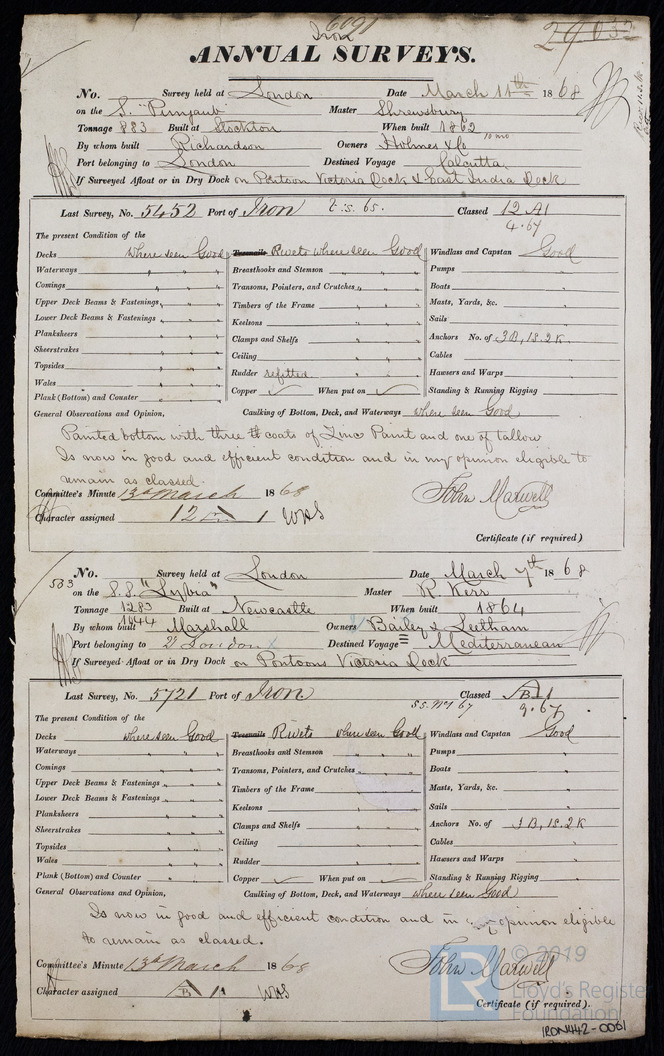 6091
Iron
29032
ANNUAL SURVEYS.
No. Survey held at London Date March 11th 1868
on the S. "Punjaub" Master Shrewsbury
Tonnage 883 Built at Stockton When built 1862 10 mo
By whom built Richardson Owners Holmes & Co
Port belonging to London Destined Voyage Calcutta
If Surveyed Afloat or in Dry Dock on Pontoon Victoria Dock & East India Dock
Last Survey, No. 5452 Port of Iron Classed 12 A1
4.67
The present Condition of the
Decks where seen Good Treenails Rivets where seen Good Windlass and Capstan Good
Waterways " " " Breasthooks and Stemson " " " Pumps "
Comings " " " Transoms, Pointers, and Crutches " " " Boats "
Upper Deck Beams & Fastenings " " " Timbers of the Frame " " " Masts, Yards, &c. "
Lower Deck Beams & Fastenings " " " Keelsons " " " Sails "
Planksheers " " " Clamps and Shelfs " " " Anchors No. of 3B, 1S. 2K.
Sheerstrakes " " " Ceiling " " " Cables "
Topsides " " " Rudder refitted Hawsers and Warps "
Wales " " " Copper ✓ When put on ✓ Standing & Running Rigging "
Plank (Bottom) and Counter " " "
General Observations and Opinion, Caulking of Bottom, Deck, and Waterways where seen Good
Painted bottom with three coats of Zinc Paint and one of tallow
Is now in good and efficient condition and in my opinion eligible to
remain as classed.
Committee's Minute 13th March 1868 John Maxwell
Character assigned 12 A 1 WHS
Certificate (if required)
No. Survey held at London Date March 7th 1868
583 on the S.S. "Lybia" Master R. Kerr
Tonnage 1283 Built at Newcastle When built 1864
1944
By whom built Marshall Owners Bailey & Leetham
Port belonging to London Destined Voyage Mediterranean
If Surveyed Afloat or in Dry Dock on Pontoons Victoria Dock
Last Survey, No. 5721 Port of Iron Classed B 1
S.S. No 1 67 9.67
The present Condition of the
Decks where seen Good Treenails Rivets where seen Good Windlass and Capstan Good
Waterways " " " Breasthooks and Stemson " " " Pumps "
Comings " " " Transoms, Pointers, and Crutches " " " Boats "
Upper Deck Beams & Fastenings " " " Timbers of the Frame " " " Masts, Yards, &c. "
Lower Deck Beams & Fastenings " " " Keelsons " " " Sails "
Planksheers " " " Clamps and Shelfs " " " Anchors No. of 3B, 1S. 2K
Sheerstrakes " " " Ceiling " " " Cables "
Topsides " " " Rudder " " " Hawsers and Warps "
Wales " " " Copper ✓ When put on ✓ Standing & Running Rigging "
Plank (Bottom) and Counter " " "
General Observations and Opinion, Caulking of Bottom, Deck, and Waterways where seen Good
Is now in good and efficient condition and in opinion eligible
to remain as classed.
Committee's Minute 13th March 1868 John Maxwell
Character assigned B 1 WHS
Certificate (if required).
LR © 2019
Lloyd's Register
Foundation
IRON442-0061